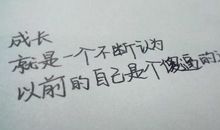 成长
就是一个不断认为
以前的自己是个傻逼的